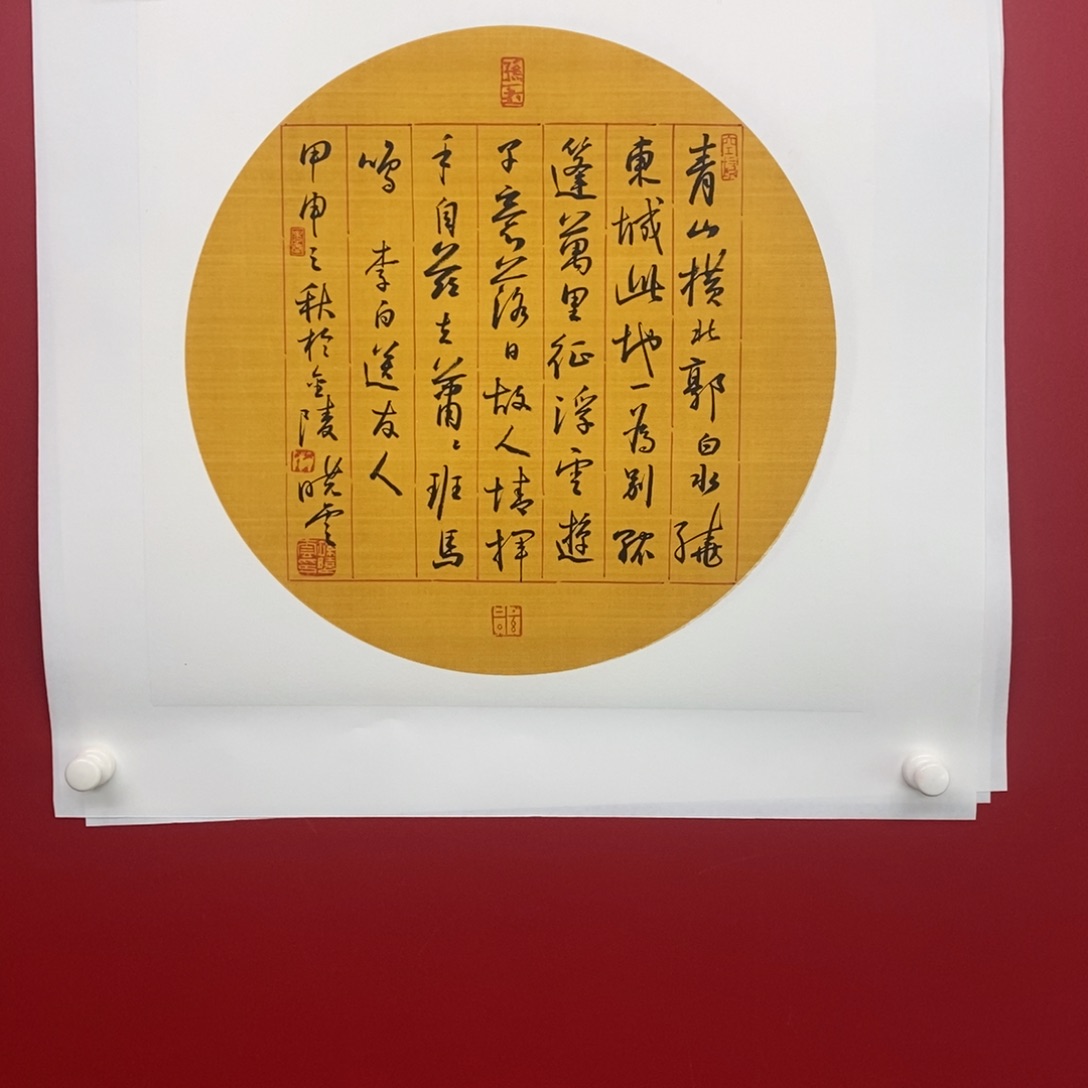 青山橫北郭白水繞
東城此地一為別孤
篷萬里征浮雲遊
子意落日故人情揮
手自茲去蕭々班馬
鳴 李白送友人
甲申之秋於金陵曉雲